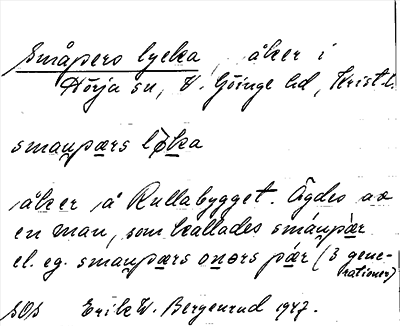 Småpers lycka, åker i
Hörja sn, V. Göinge hd, Krist. l.
smaupærs løka
åker å Rullabygget. Ägdes av
en man, som kallades smáupär
el. eg. smaupærs onərs pär (3 gene-
rationer)
SOS Erik W. Bergenrud 1947.